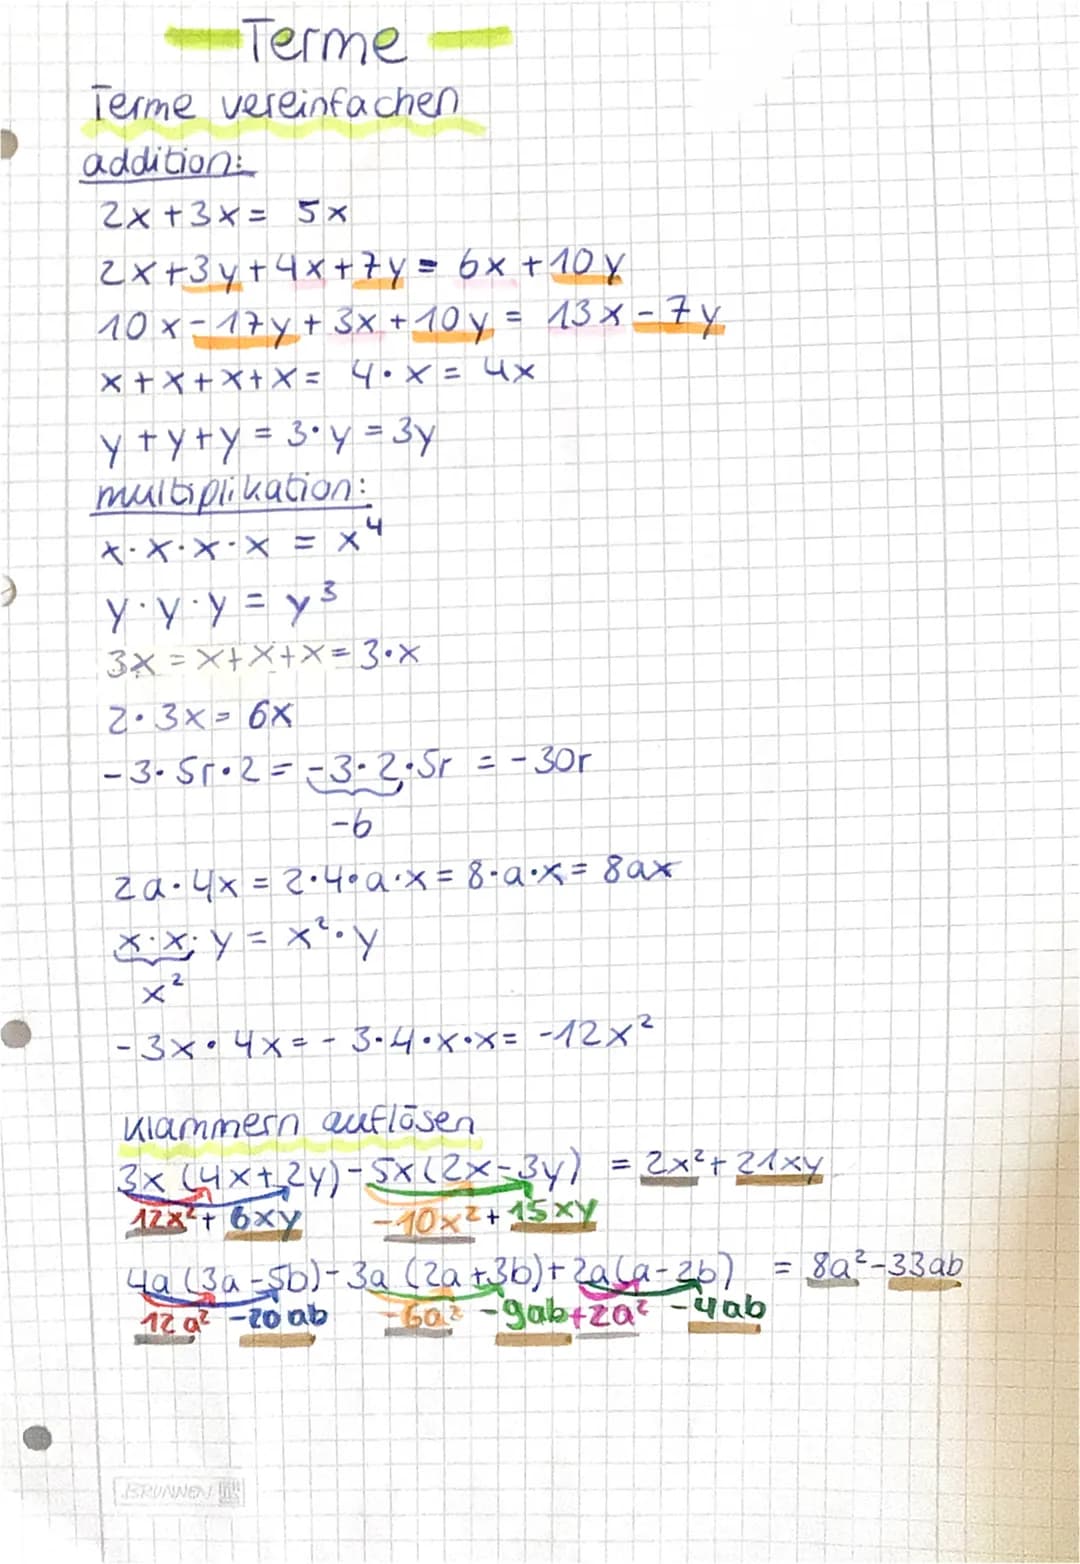 Terme
Terme vereinfachen
addition:
2x + 3x = 5x
2x + 3y + 4x + 7y = 6x + 10y
10x - 17y + 3x + 10y = 13x - 7y
x + x + x + x = 4 · x = 4x
y + y + y = 3 · y = 3y
multiplikation:
x · x · x · x = x⁴
y · y · y = y³
3x = x + x + x = 3 · x
2 · 3x = 6x
-3 · 5r · 2 = -3 · 2 · 5r = -30r
-6
2a · 4x = 2 · 4 · a · x = 8 · a · x = 8ax
x · x · y = x² · y
x²
-3x · 4x = -3 · 4 · x · x = -12x²
Klammern auflösen
3x (4x + 2y) - 5x (2x - 3y) = 2x² + 21xy
12x² + 6xy -10x² + 15xy
4a (3a - 5b) - 3a (2a + 3b) + 2a (a - 2b) = 8a² - 33ab
12a² - 20ab -6a² - 9ab + 2a² - 4ab
BRUNNEN